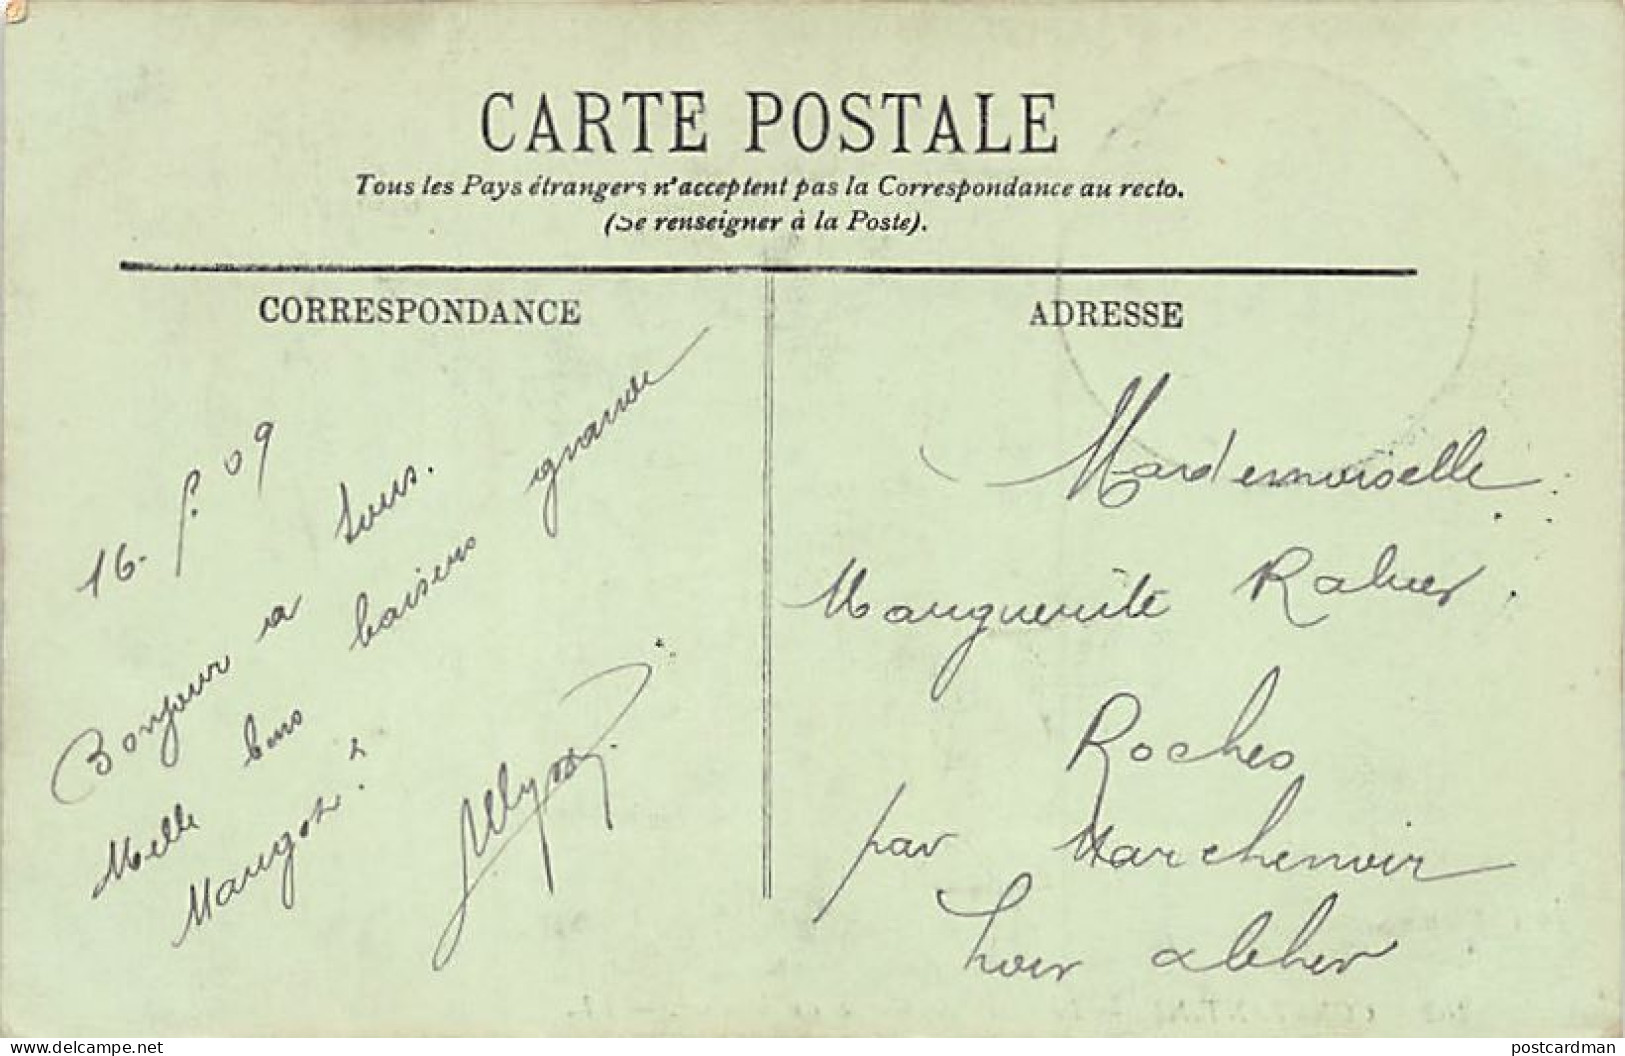 CARTE POSTALE
Tous les Pays étrangers n'acceptent pas la Correspondance au recto.
(Se renseigner à la Poste).
CORRESPONDANCE
16. 09
Bonjour a tous.
Melle bons baisers grande
Margot?
ADRESSE
Mademoiselle
Marguerite
Roches
par Marchenoir
Loir & Cher
www.delcampe.net
postcardman